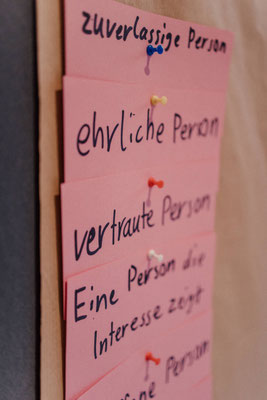 zuverlässige Person
ehrliche Person
vertraute Person
Eine Person die
Interesse zeigt
Person